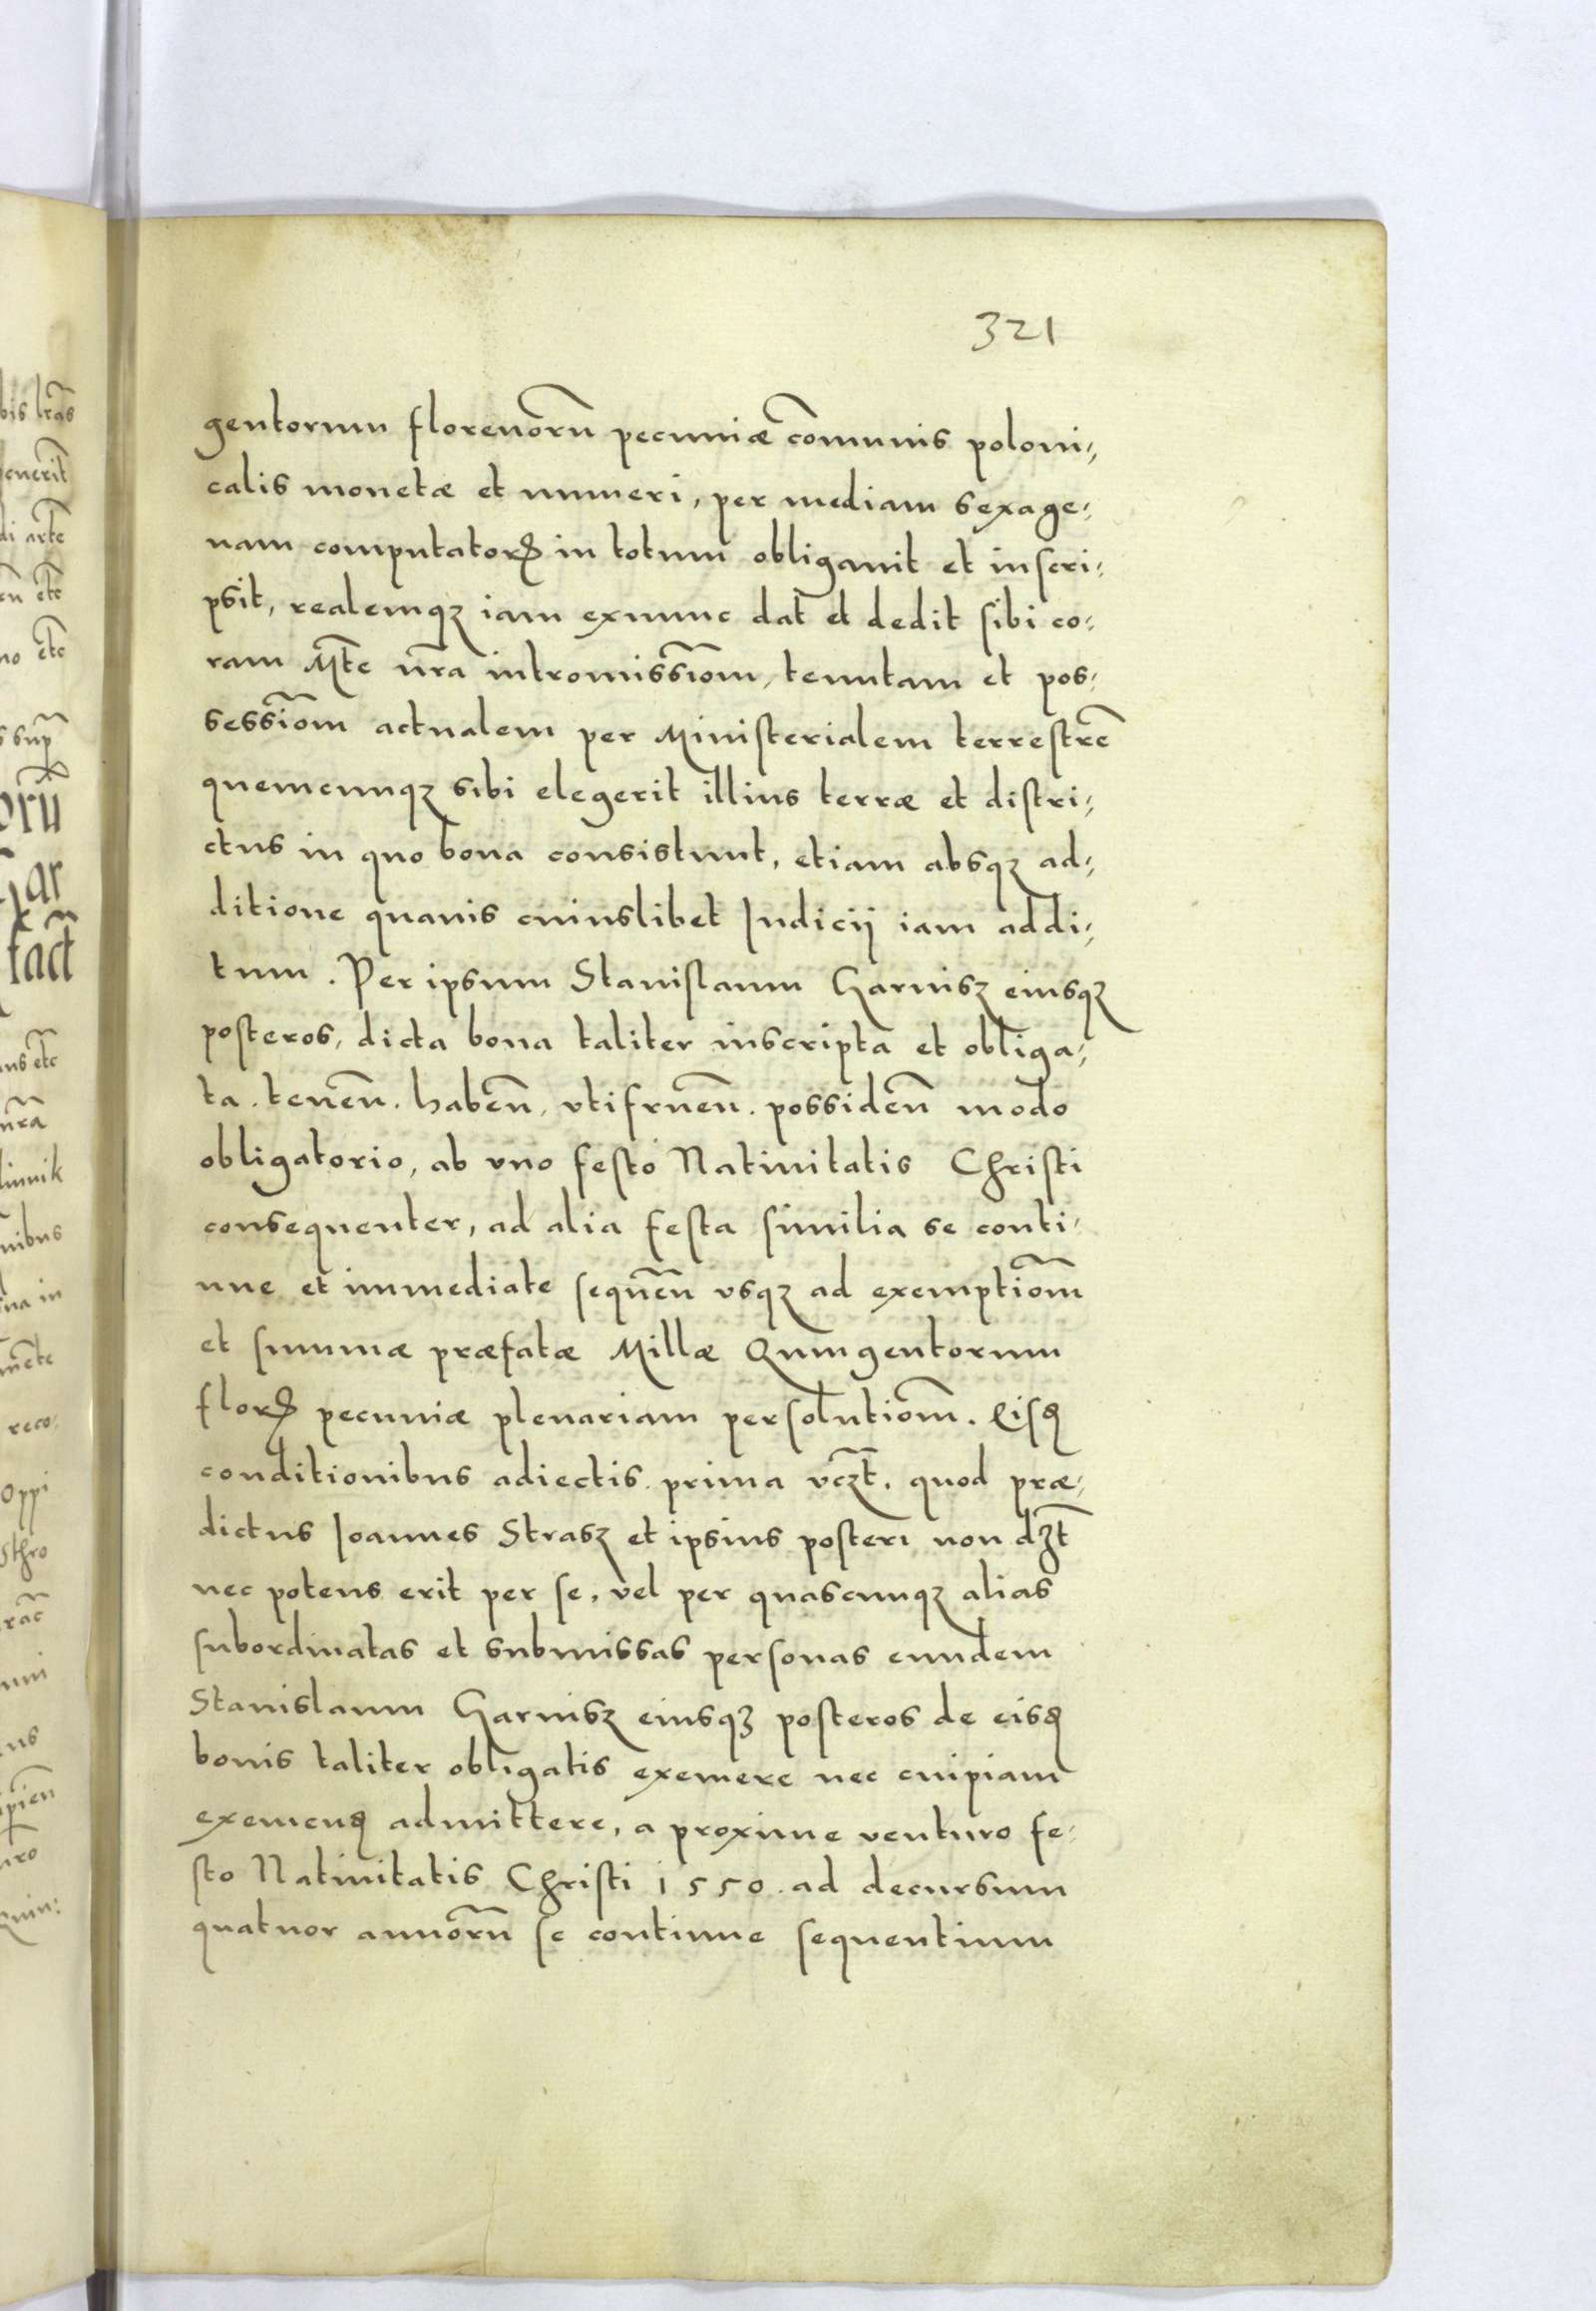 321
gentorum florenorũ pecuniæ cõmunis poloni,
calis monetæ et numeri, per mediam sexage,
nam computatorꝝ in totum obligauit et inscri,
psit, realemqꝫ iam exnunc dat et dedit sibi co,
ram Mte nr̃a intromissiõm, tenutam et pos,
sessiõm actualem per Ministerialem terrestrẽ
quemcunqꝫ sibi elegerit illius terræ et distri,
ctus in quo bona consistunt, etiam absqꝫ ad,
ditione quauis cuiuslibet Iudicij iam addi,
tum. Per ipsum Stanislaum Garnisz eiusqꝫ
posteros, dicta bona taliter inscripta et obliga,
ta. teneñ. habeñ, vtifrueñ. possideñ modo
obligatorio, ab vno festo Natiuitatis Christi
consequenter, ad alia festa similia se conti,
nue et immediate sequeñ vsqꝫ ad exemptiõm
et summæ præfatæ Millæ Quingentorum
florꝝ pecuniæ plenariam persolutiõm. Eisꝫ
conditionibus adiectis. prima vcꝫt̃. quod præ,
dictus Ioannes Strasz et ipsius posteri non dꝫt̃
nec potens erit per se, vel per quascunqꝫ alias
subordinatas et submissas personas eundem
Stanislaum Garnisz eiusqꝫ posteros de eisꝫ
bonis taliter obligatis exemere nec cuipiam
exemenꝫ admittere, a proxime venturo fe,
sto Natiuitatis Christi 1550. ad decursum
quatuor annorũ se continue sequentium